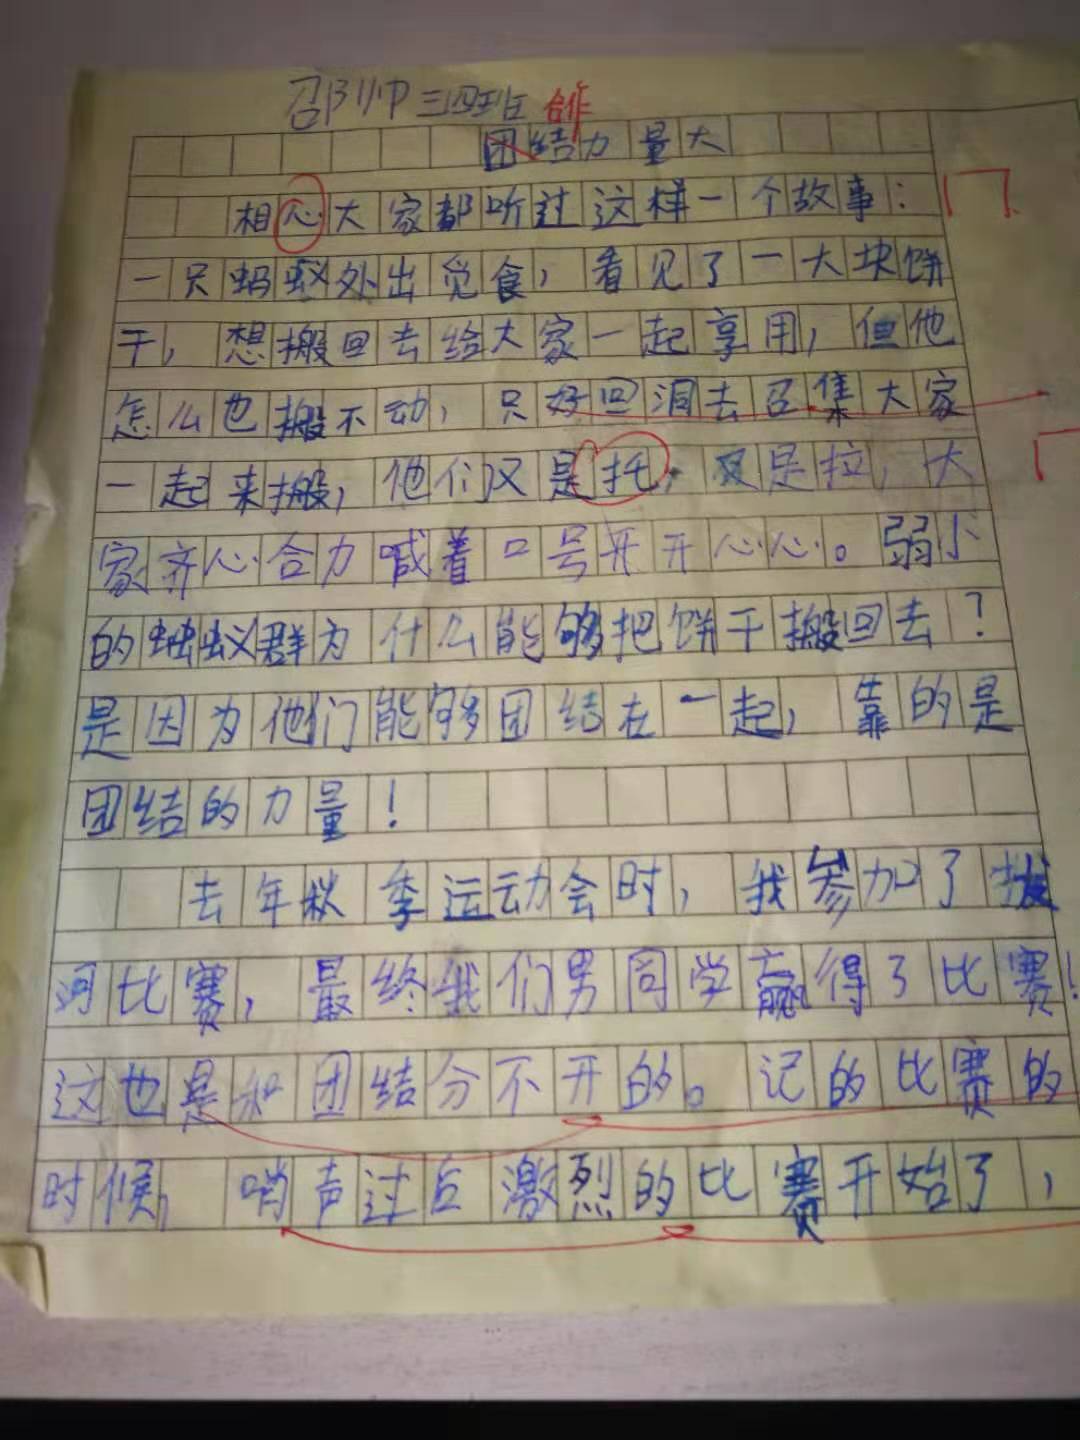 邵帅 三四班 合作
团结力量大
相心大家都听过这样一个故事：
一只蚂蚁外出觅食，看见了一大块饼
干，想搬回去给大家一起享用，但他
怎么也搬不动，只好回洞去召集大家
一起来搬，他们又是托，又是拉，大
家齐心合力喊着口号开开心心。弱小
的蚂蚁群为什么能够把饼干搬回去？
是因为他们能够团结在一起，靠的是
团结的力量！
去年秋季运动会时，我参加了拔
河比赛，最终我们男同学赢得了比赛！
这也是和团结分不开的。记的比赛的
时候，哨声过后激烈的比赛开始了，